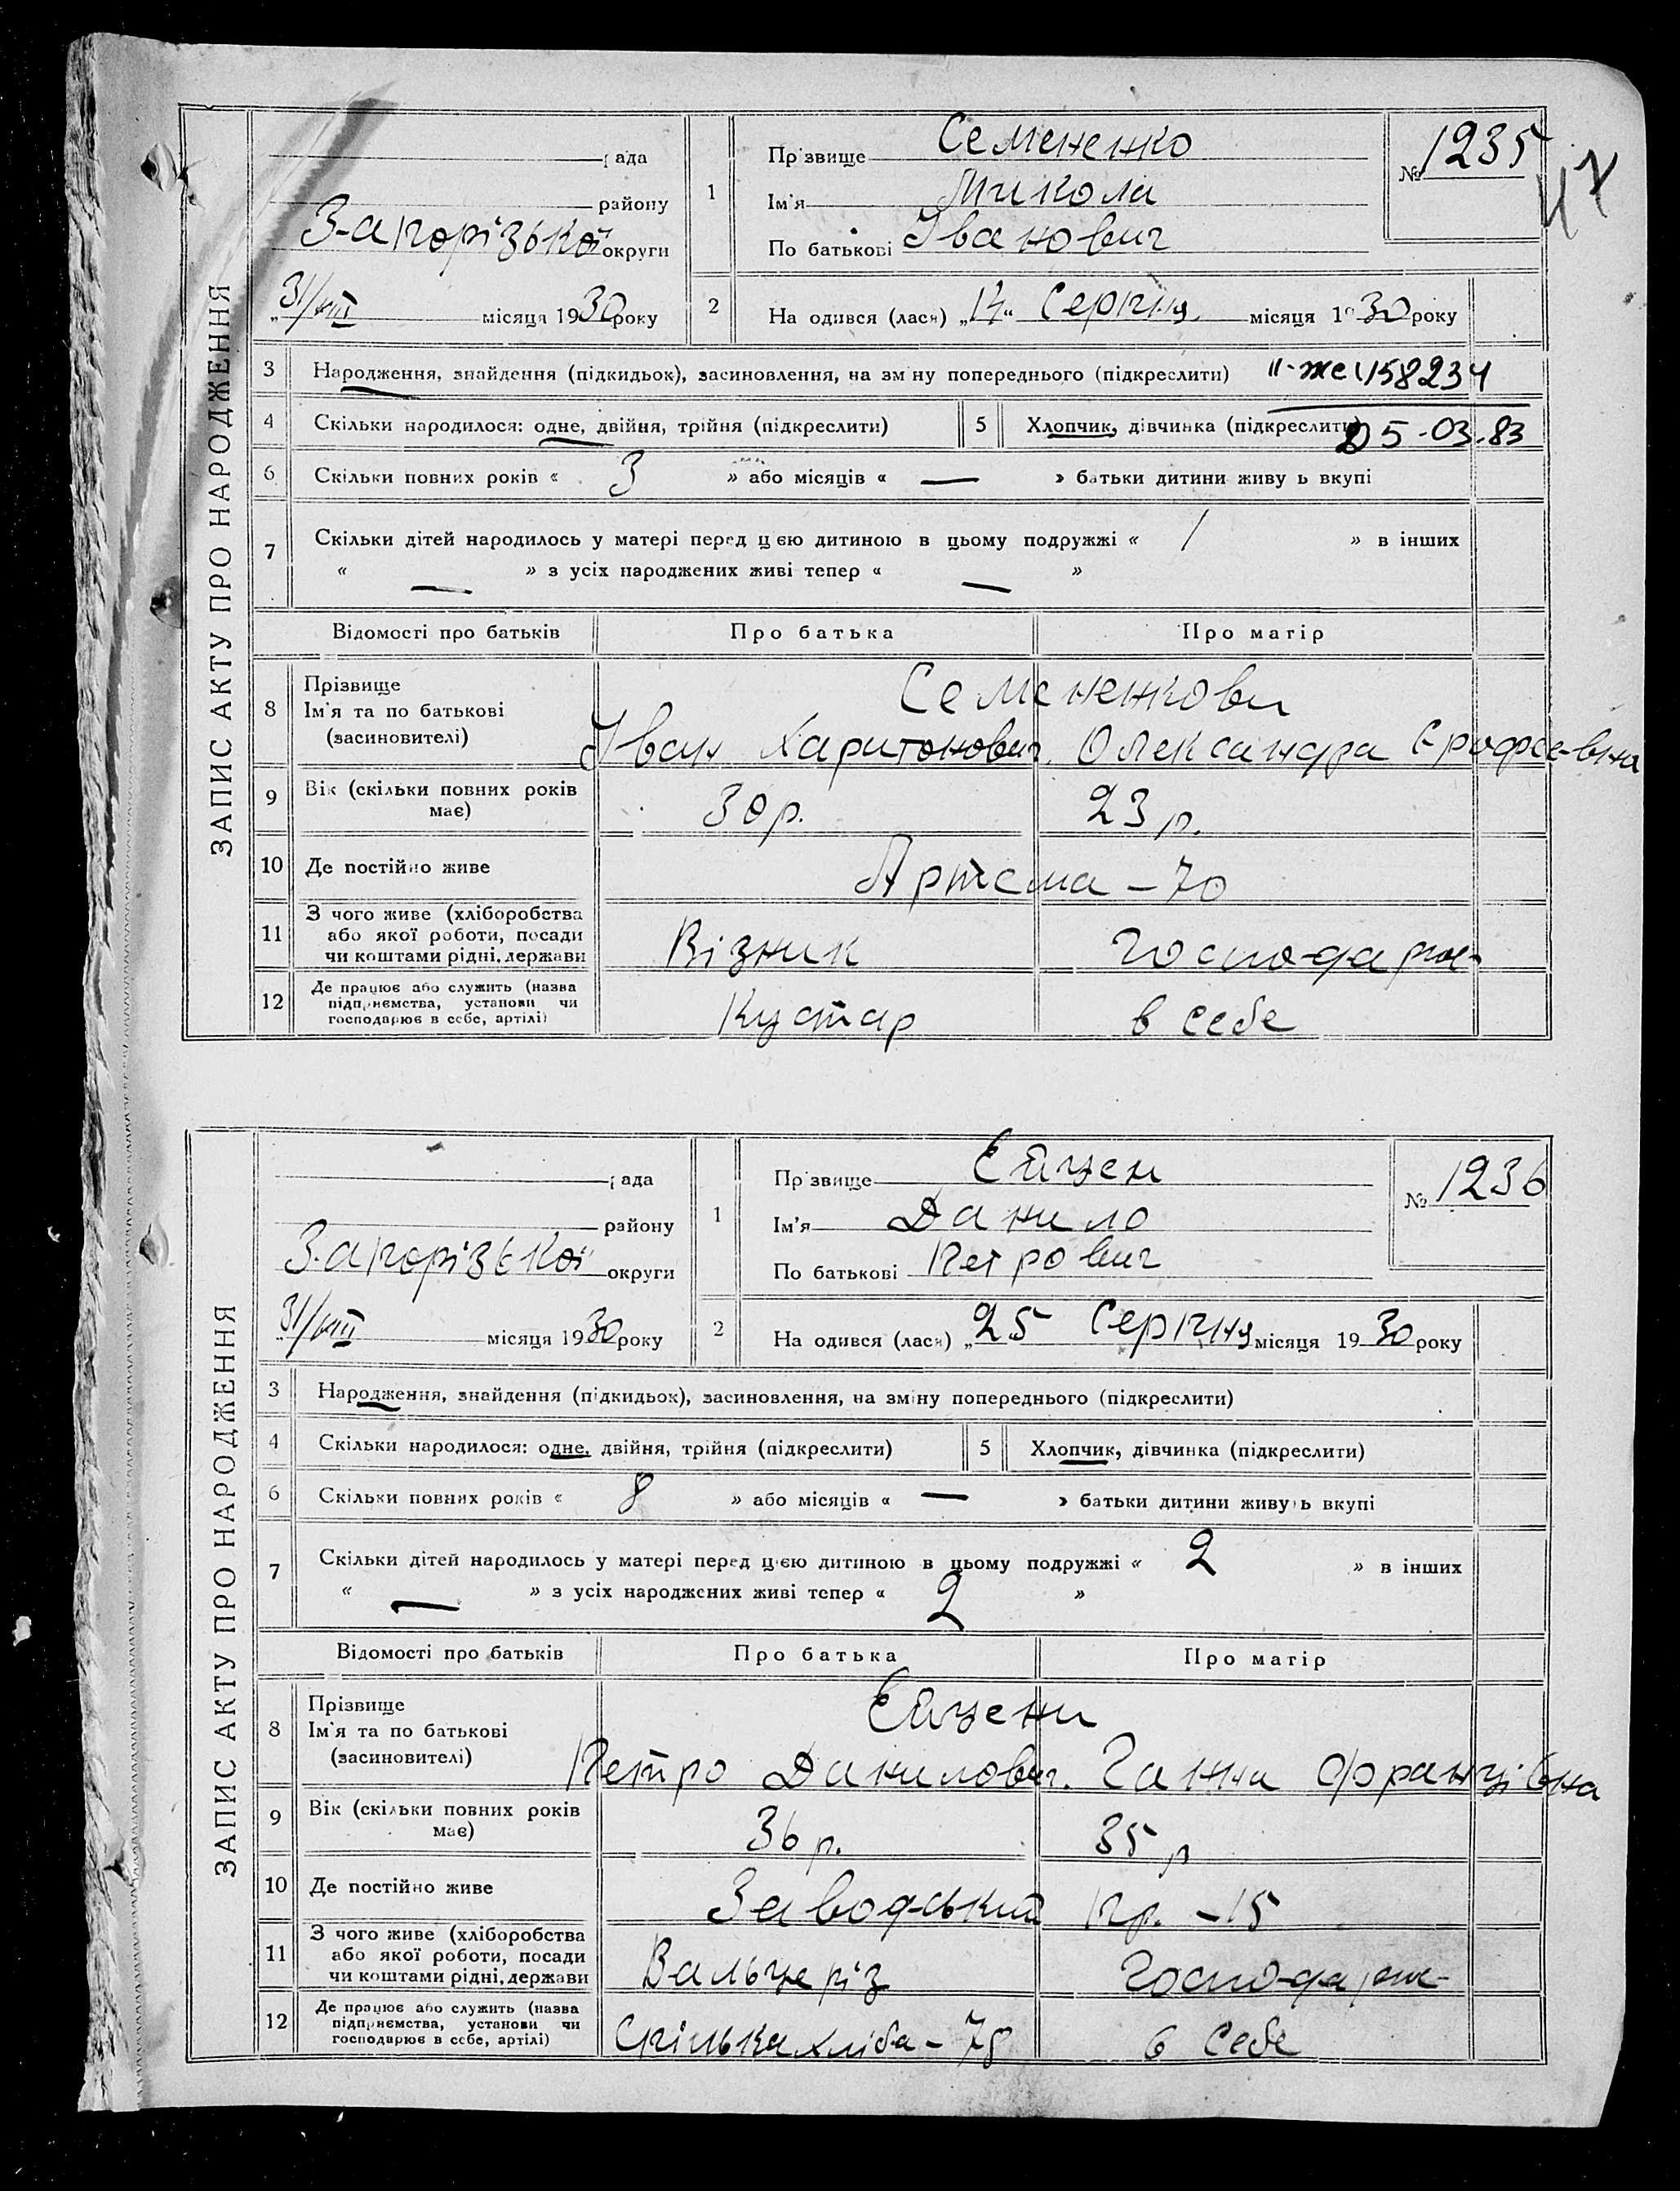 ЗАПИС АКТУ ПРО НАРОДЖЕННЯ
рада
району
Запорізької округи
31/VIII місяця 1930 року
1
Прізвище Семененко
Ім'я Микола
По батькові Іванович
№ 1235
47
2
На одився (лася) „14“ Серпня місяця 1930 року
3 Народження, знайдення (підкидьок), засиновлення, на зміну попереднього (підкреслити) II-же 458234
4 Скільки народилося: одне, двійня, трійня (підкреслити) 5 Хлопчик, дівчинка (підкреслити) 05-03-83
6 Скільки повних років « 3 » або місяців « — » батьки дитини живуть вкупі
7 Скільки дітей народилось у матері перед цією дитиною в цьому подружжі « 1 » в інших
« — » з усіх народжених живі тепер « — »
Відомості про батьків Про батька Про матір
8 Прізвище Семененкови
Ім'я та по батькові Іван Харитонович. Олександра Єрофєєвна
(засиновителі)
9 Вік (скільки повних років має) 30 р. 23 р.
10 Де постійно живе Артема – 70
11 З чого живе (хліборобства або якої роботи, посади чи коштами рідні, держави Візник Господарює
12 Де працює або служить (назва підприємства, установи чи господарює в себе, артілі) Кустар в себе
ЗАПИС АКТУ ПРО НАРОДЖЕННЯ
рада
району
Запорізької округи
31/VIII місяця 1930 року
1
Прізвище Ейцен
Ім'я Данило
По батькові Петрович
№ 1236
2
На одився (лася) „25 Серпня місяця 1930 року
3 Народження, знайдення (підкидьок), засиновлення, на зміну попереднього (підкреслити)
4 Скільки народилося: одне, двійня, трійня (підкреслити) 5 Хлопчик, дівчинка (підкреслити)
6 Скільки повних років « 8 » або місяців « — » батьки дитини живуть вкупі
7 Скільки дітей народилось у матері перед цією дитиною в цьому подружжі « 2 » в інших
« — » з усіх народжених живі тепер « 2 »
Відомості про батьків Про батька Про матір
8 Прізвище Ейцени
Ім'я та по батькові Петро Данилович. Ганна Францівна
(засиновителі)
9 Вік (скільки повних років має) 36 р. 35 р
10 Де постійно живе Заводський пр. – 15
11 З чого живе (хліборобства або якої роботи, посади чи коштами рідні, держави Вальцеріз Господарює
12 Де працює або служить (назва підприємства, установи чи господарює в себе, артілі) Спілька хліба – 78 в себе